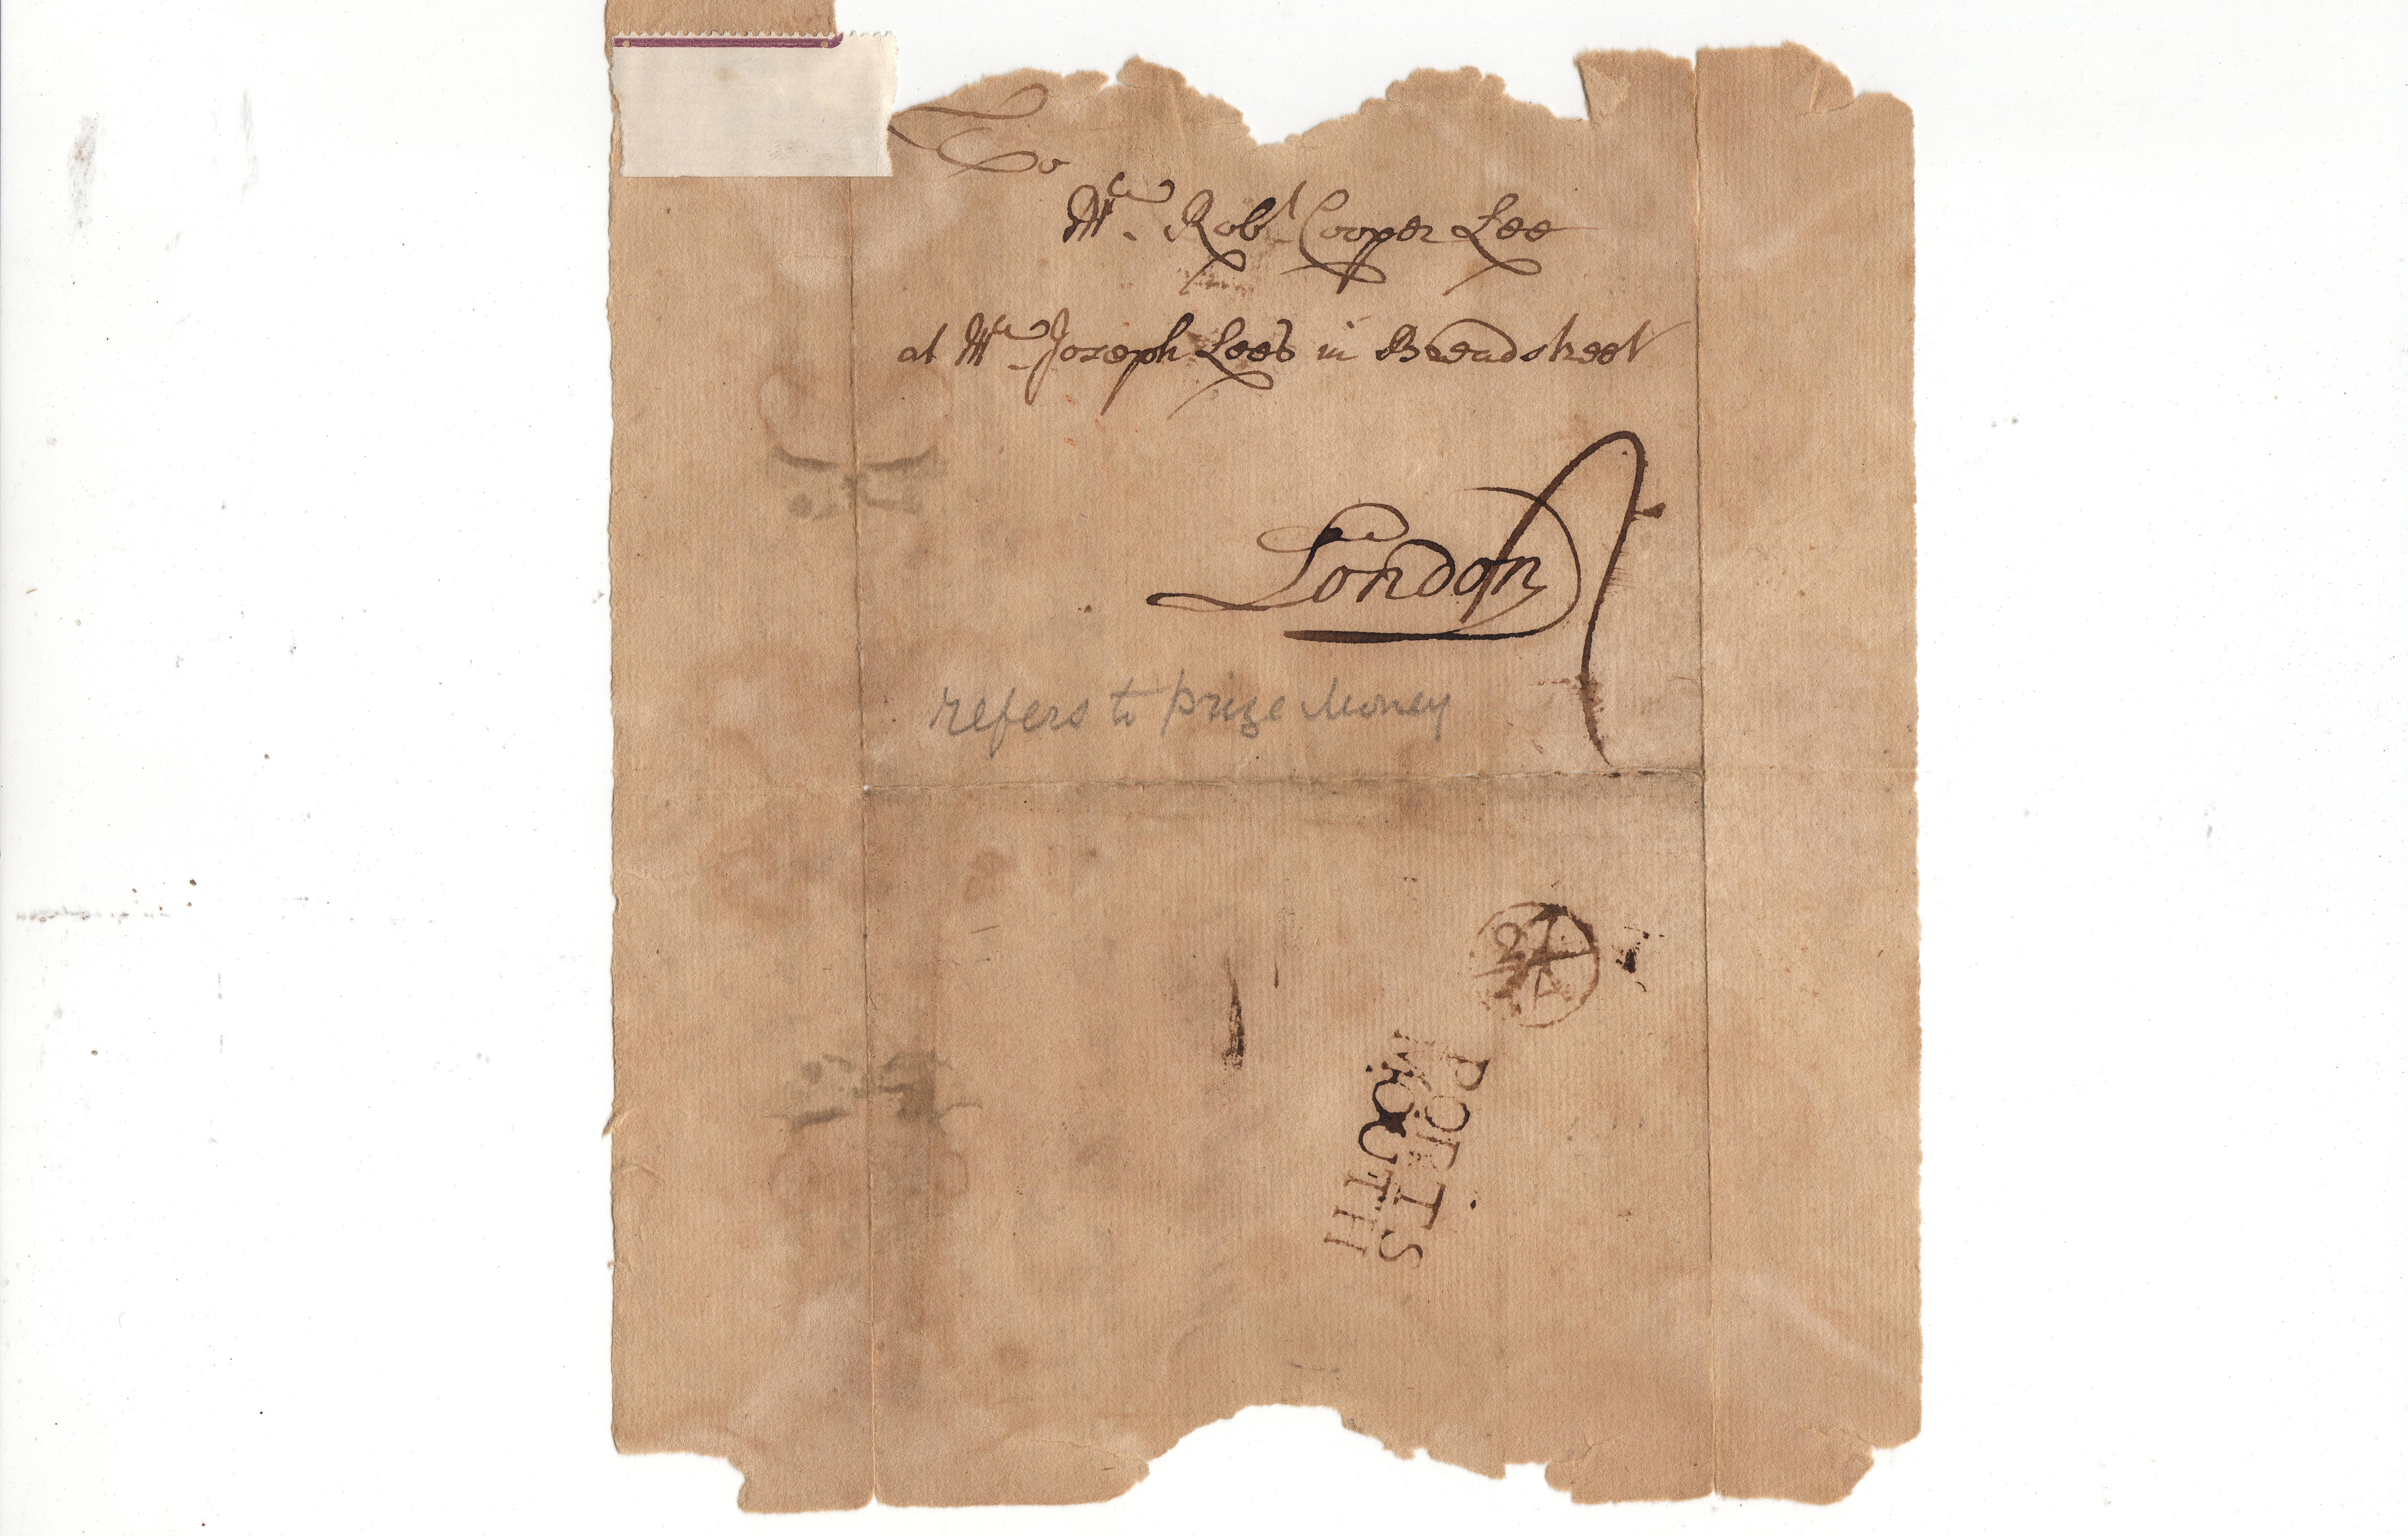 To
Mr. Robt. Cooper Lee
at Mr. Joseph Lees in Breadstreet
London
refers to prize Money
PORTS
MOUTH